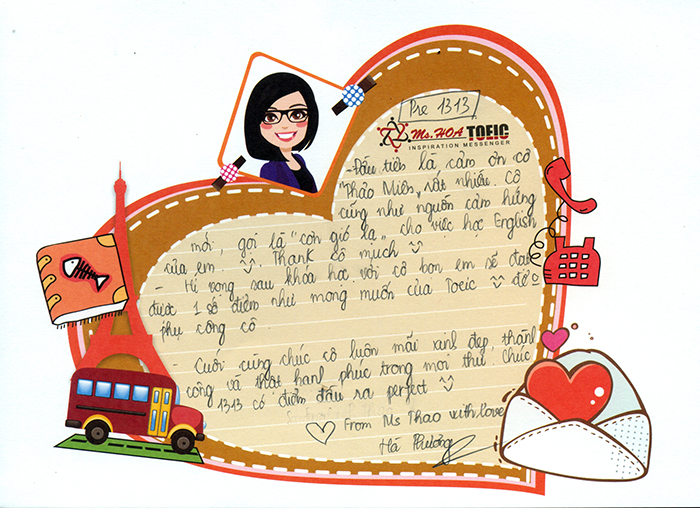 Pre 1313
Ms.HOA TOEIC
INSPIRATION MESSENGER
- Đầu tiên là cảm ơn cô
"Thảo Miên" rất nhiều. Cô
cũng như nguồn cảm hứng
mới, gọi là "cơn gió lạ" cho việc học English
của em. Thank cô much
- Hi vọng sau khóa học với cô bọn em sẽ đạt
được 1 số điểm như mong muốn của Toeic để 0
phụ công cô
- Cuối cùng chúc cô luôn mãi xinh đẹp, thành
công và thật hạnh phúc trong mọi thứ. Chúc
1313 có điểm đầu ra perfect
From Ms Thao with love
Hà Phương